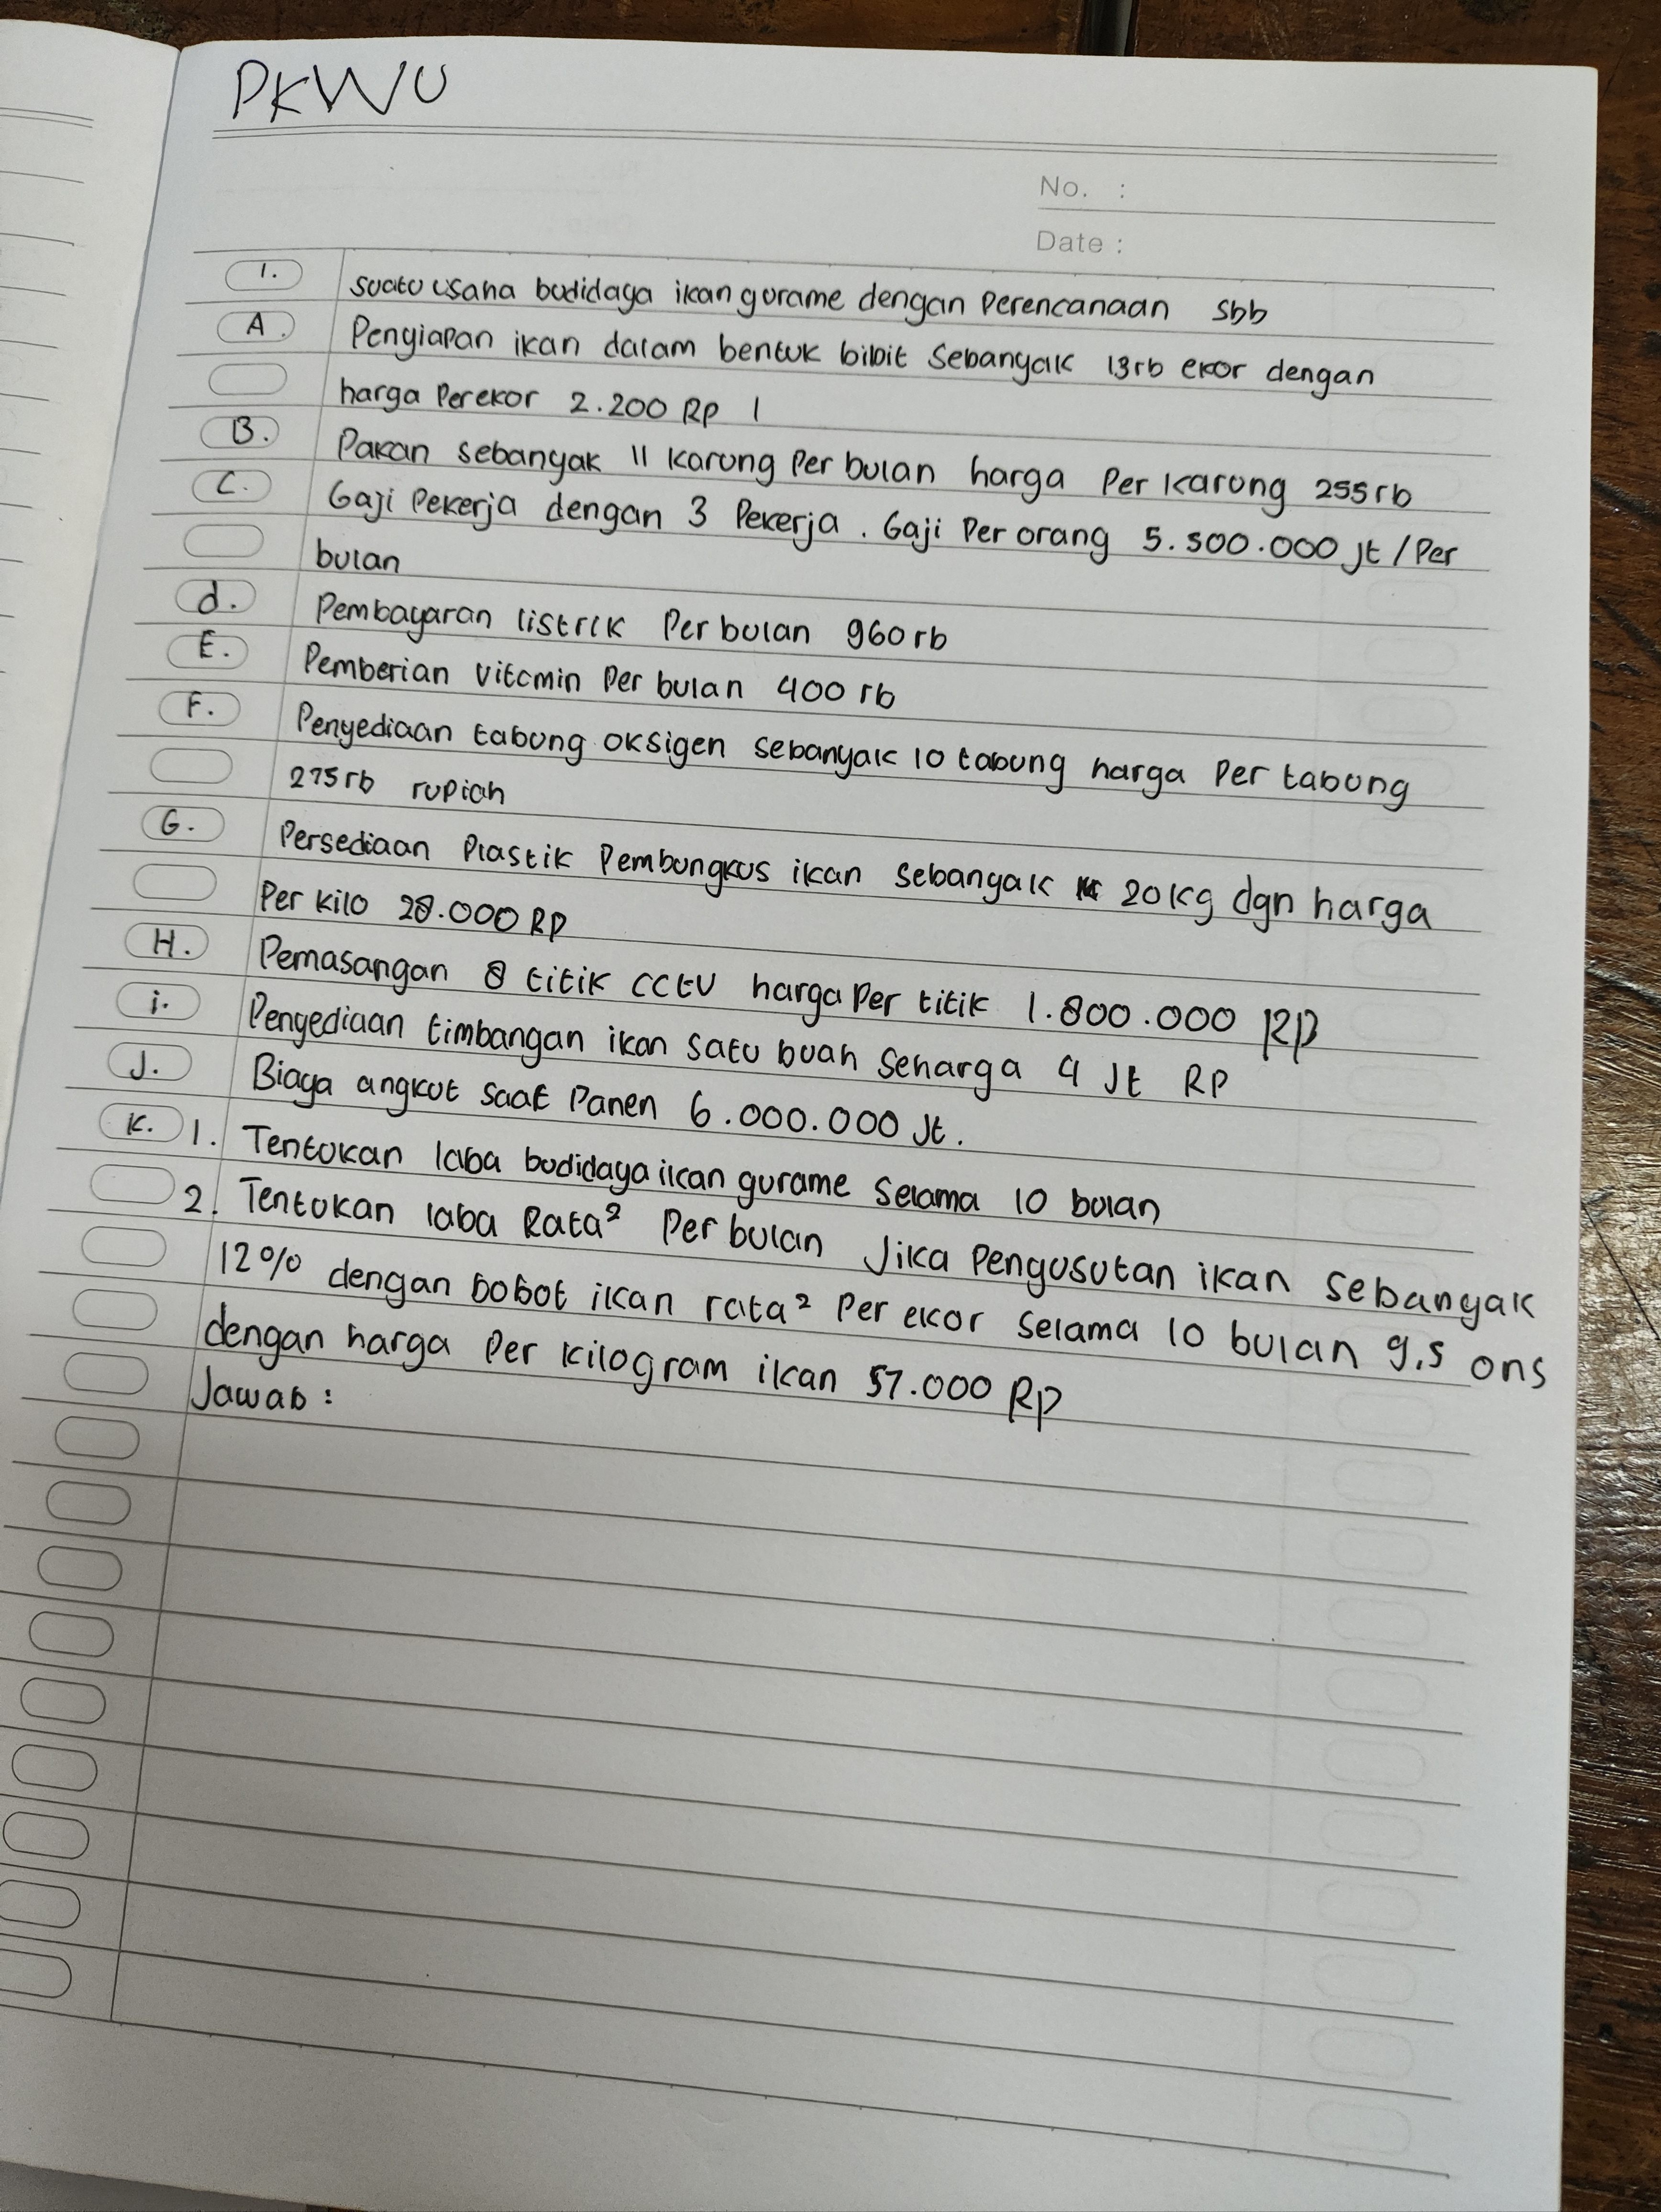 PKWU
No. :
Date :
1. suatu usaha budidaya ikan gurame dengan Perencanaan sbb
A. Penyiapan ikan dalam bentuk bibit Sebanyak 13rb ekor dengan
harga Perekor 2.200 RP 1
B. Pakan sebanyak 11 karung Per bulan harga Per karung 255rb
C. Gaji Pekerja dengan 3 Pekerja. Gaji Per orang 5.500.000 jt/Per
bulan
d. Pembayaran listrik Per bulan 960rb
E. Pemberian vitamin Per bulan 400 rb
F. Penyediaan tabung oksigen sebanyak 10 tabung harga Per tabung
275rb rupiah
G. Persediaan Plastik Pembungkus ikan sebanyak 20kg dgn harga
Per kilo 28.000 RP
H. Pemasangan 8 titik CCTV harga Per titik 1.800.000 RP
i. Penyediaan timbangan ikan satu buah seharga 4 Jt RP
J. Biaya angkut saat Panen 6.000.000 Jt.
K. 1. Tentukan laba budidaya ikan gurame selama 10 bulan
2. Tentukan laba Rata² Per bulan Jika Pengusutan ikan sebanyak
12% dengan bobot ikan rata² Per ekor selama 10 bulan 9,5 ons
dengan harga Per kilogram ikan 57.000 RP
Jawab :